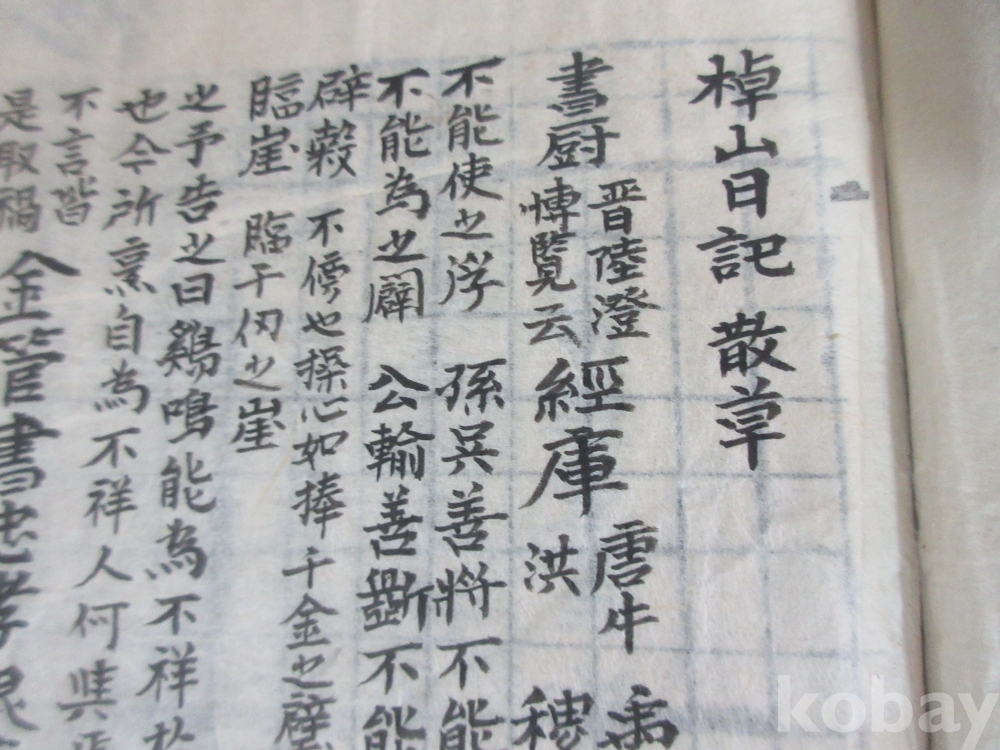 棹山日記 散草
書厨 晋陸澄
博覧云 經庫 唐牛
洪
不能使之浮 孫吳善將不能
不能為之闢 公輸善斲不能
辟穀 不 也操心如捧千金之璧
臨崖 臨千仞之崖
之予告之曰鷄鳴能為不祥於
也今所烹自為不祥人何
不言皆
是取禍 金管書忠孝